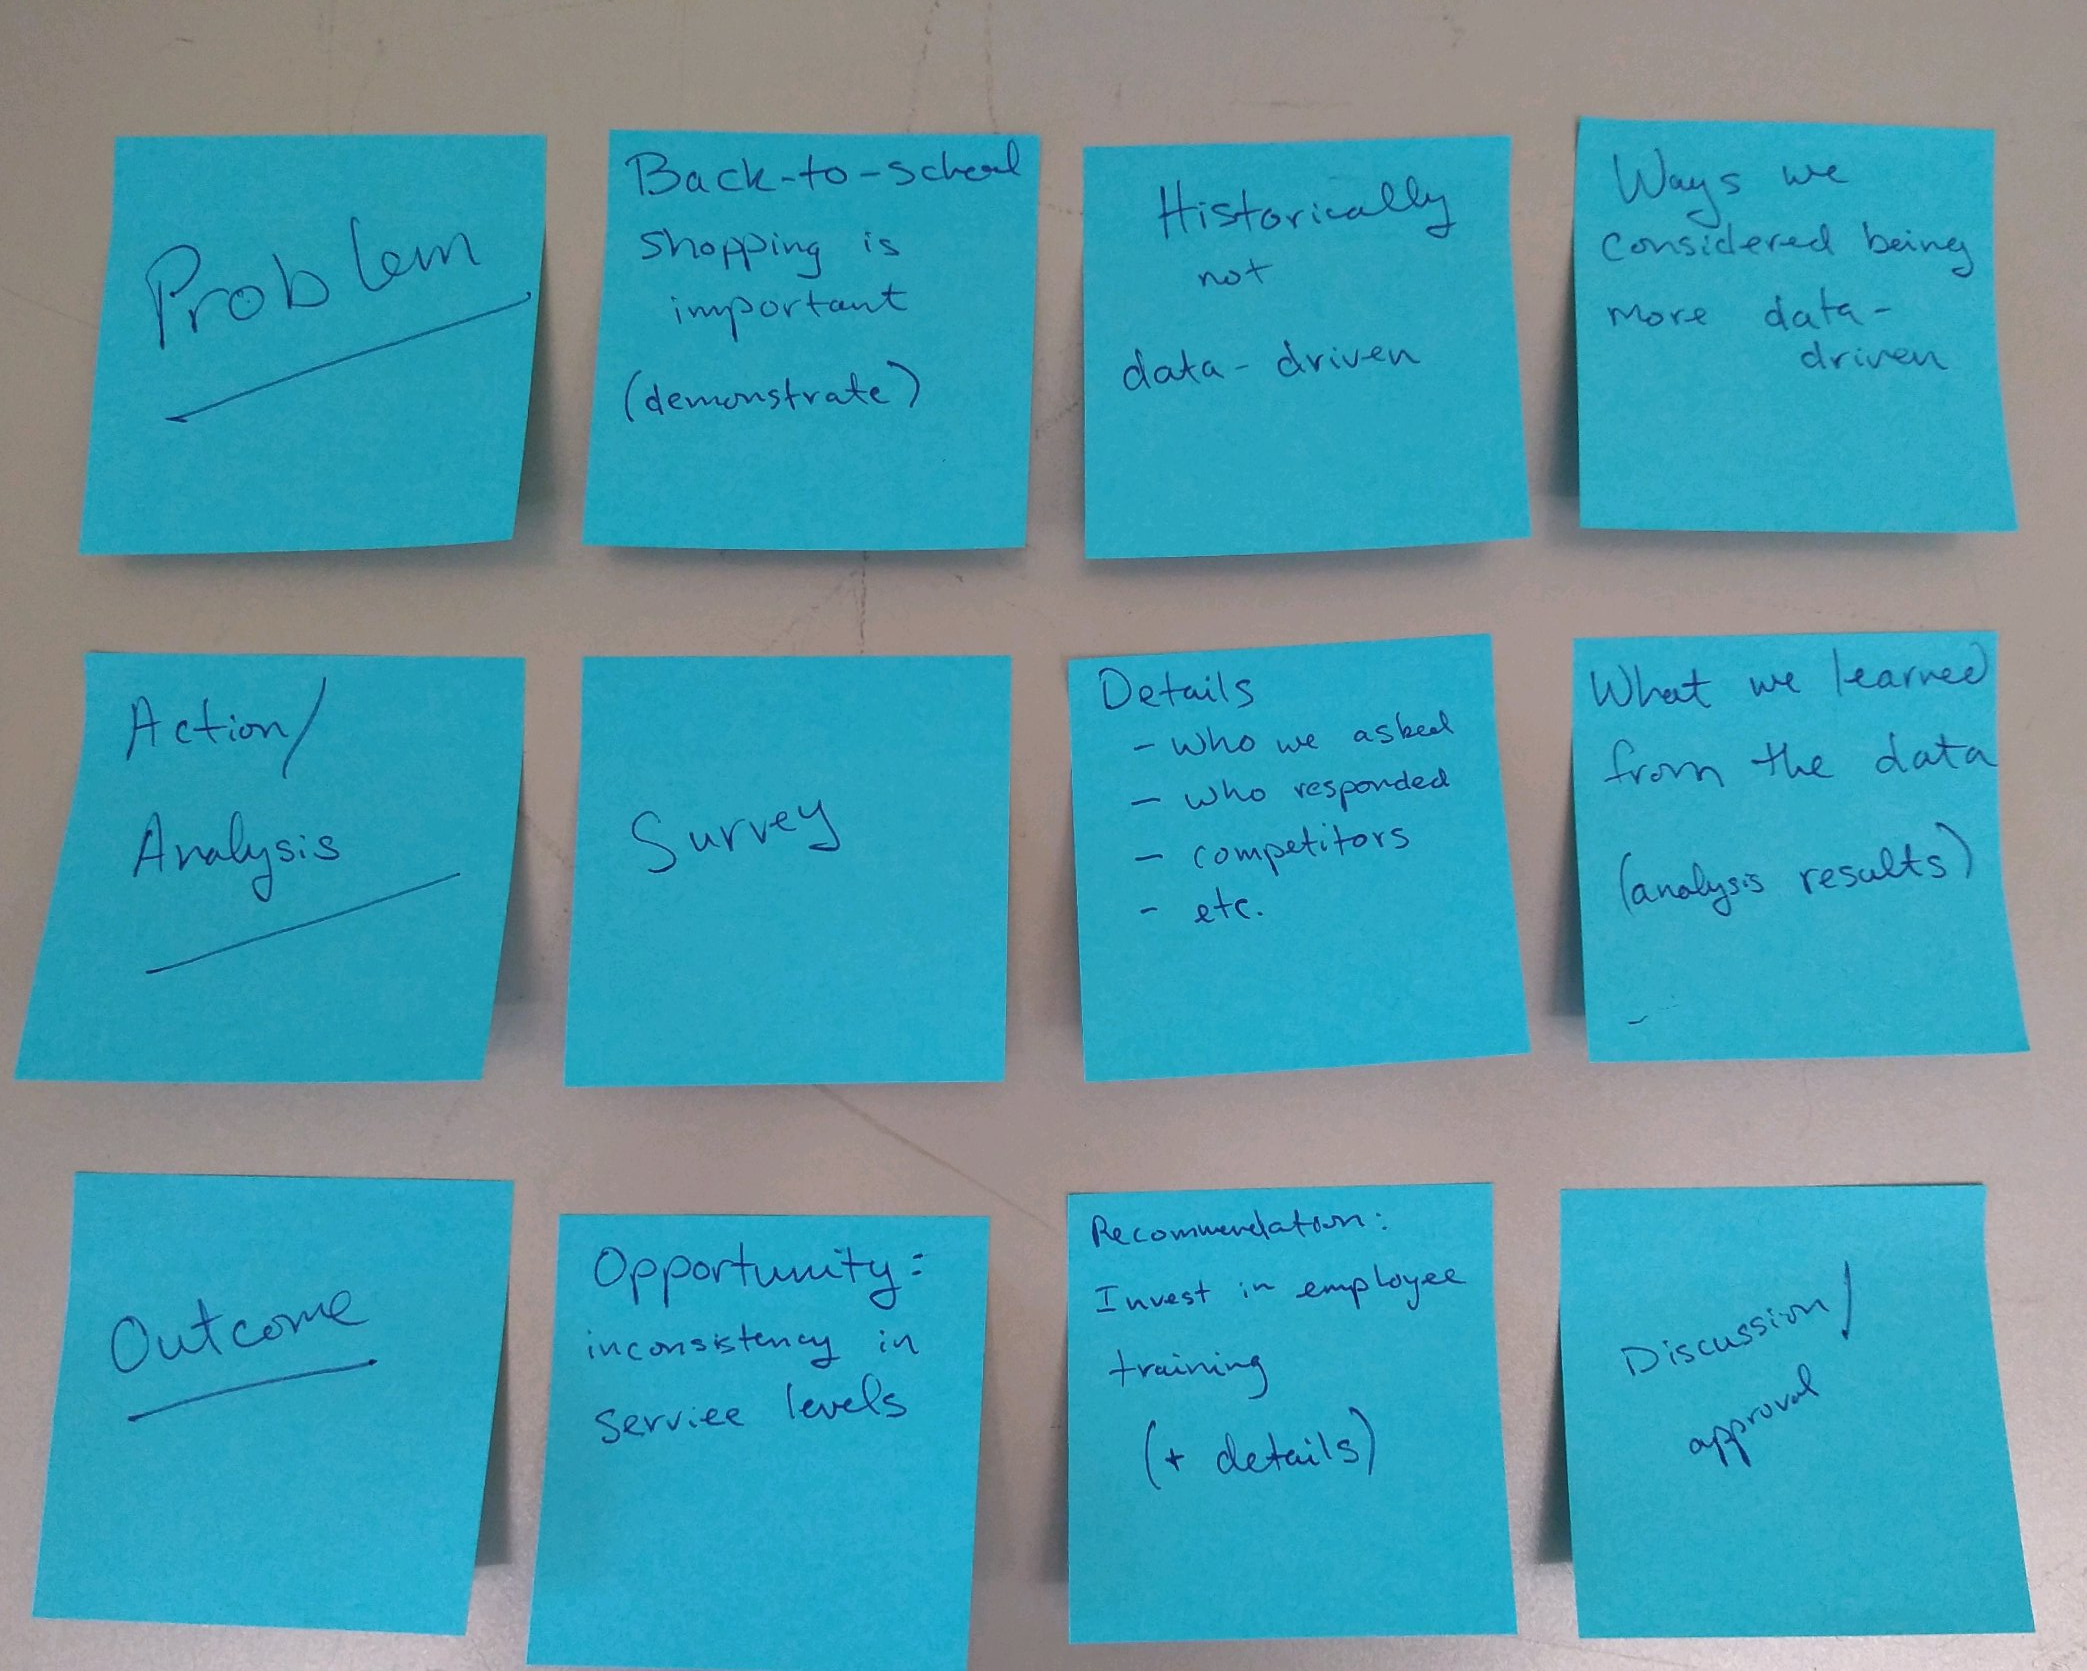 Problem
Back-to-school
shopping is
important
(demonstrate)
Historically
not
data-driven
Ways we
considered being
more data-
driven
Action/
Analysis
Survey
Details
- who we asked
- who responded
- competitors
- etc.
What we learned
from the data
(analysis results)
Outcome
Opportunity:
inconsistency in
service levels
Recommendation:
Invest in employee
training
(+ details)
Discussion/
approval